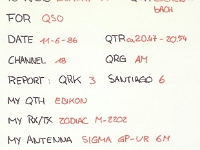 BACH
FOR QSO
DATE 11-6-86 QTR ca. 20.47 - 20.54
CHANNEL 18 QRG AM
REPORT: QRK 3 SANTIAGO 6
MY QTH EDIKON
MY RX/TX ZODIAC M-2202
MY ANTENNA SIGMA GP-UR 6M